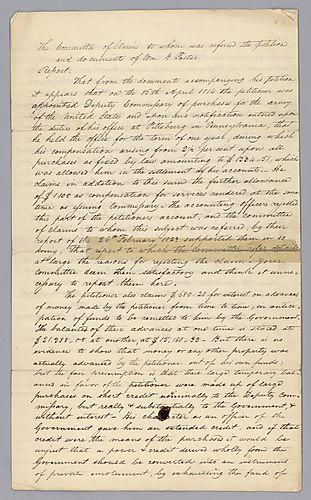 The Committee of Claims to whom was refered the petition
and documents of Wm B Foster
Report.
That from the documents accompanying his petition
it appears that on the 15th April 1814 the petitioner was
appointed Deputy Commissary of purchases for the army
of the United States and upon his notification entered upon
the duties of his office at Pittsburg in Pennsylvania, that
he held the office for the term of one year, during which
his compensation arising from 2½ per cent upon all
purchases as fixed by law amounting to $ 1234.51, which
was allowed him in the settlement of his account. He
claims in addition to this sum the further allowance
of $ 1100 as compensation for services rendered at the same
time as issuing Commissary - the accounting officers rejected
this part of the petitioners account, and the committee
of claims to whom this subject was referred by their
report of the 26th February 1823 supported them in so
doing. That report to which the Committee refer states
at large the reasons for rejecting the claim. Your
Committee deem them satisfactory and think it unne-
cessary to repeat them here.
The petitioner also claims $ 500.20 for interest on advances
of money made by the petitioner from time to time, in antici-
pation of funds to be remitted to him by the Government.
The balances of their advances at one time is stated at
at another, at $ But there is no
evidence to show that money or any other property was
actually advanced by the petitioner out of his own funds;
but the fair presumption is that these large temporary bal-
ances in favor of the petitioner were made up of large
purchases on short credit nominally to the Deputy Com-
missary, but really & substantially to the Government,
without interest - His character as an officer of the
Government gave him an extended credit, and if that
credit were the means of the purchases it would be
unjust that a power & credit derived wholly from the
Government should be converted into an instrument
of private emolument, by exhausting the funds of